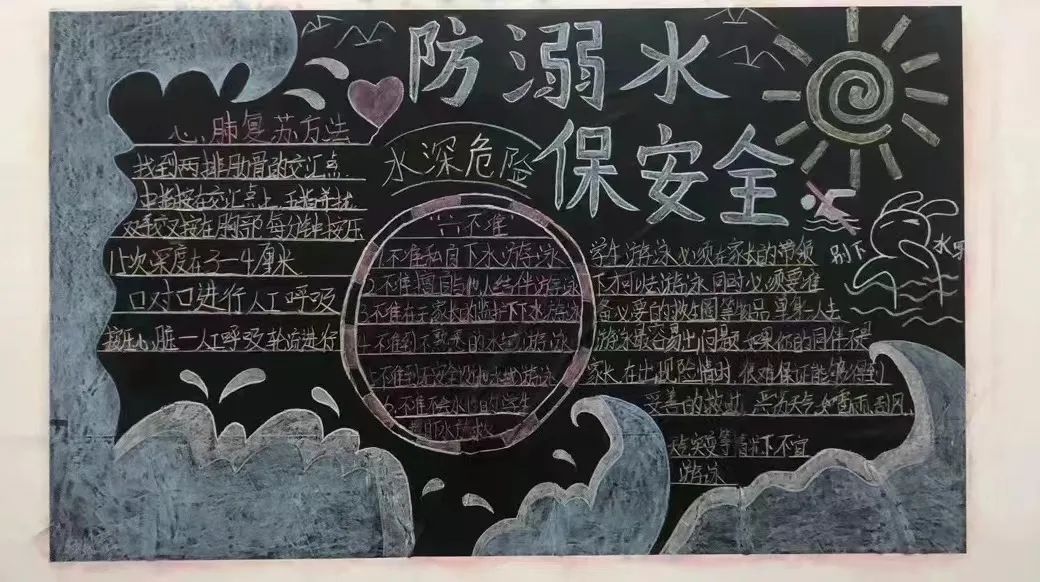 防溺水
保安全
水深危险
心肺复苏方法
找到两排肋骨的交汇点
中指按在交汇点上,五指并拢
双手交叉按在胸部每分钟按压
15次深度在3-4厘米
口对口进行人工呼吸
按压心脏-人工呼吸轮流进行
“六不准”
1.不准私自下水游泳
2.不准擅自与他人结伴游泳
3.不准在无家长的监护下下水游泳
4.不准到不熟悉的水域游泳
5.不准到无安全设施水域游泳
6.不准不会水性的学生
学生游泳必须在家长的带领
下才可以去游泳同时必须要准
备必要的救生圈等物品单身一人去
游泳最容易出问题如果你的同伴不是
家长在出现险情时很难保证能够得到
妥善的救助 天气如雷雨刮风
突变等情况下不宜
游泳
别下
水